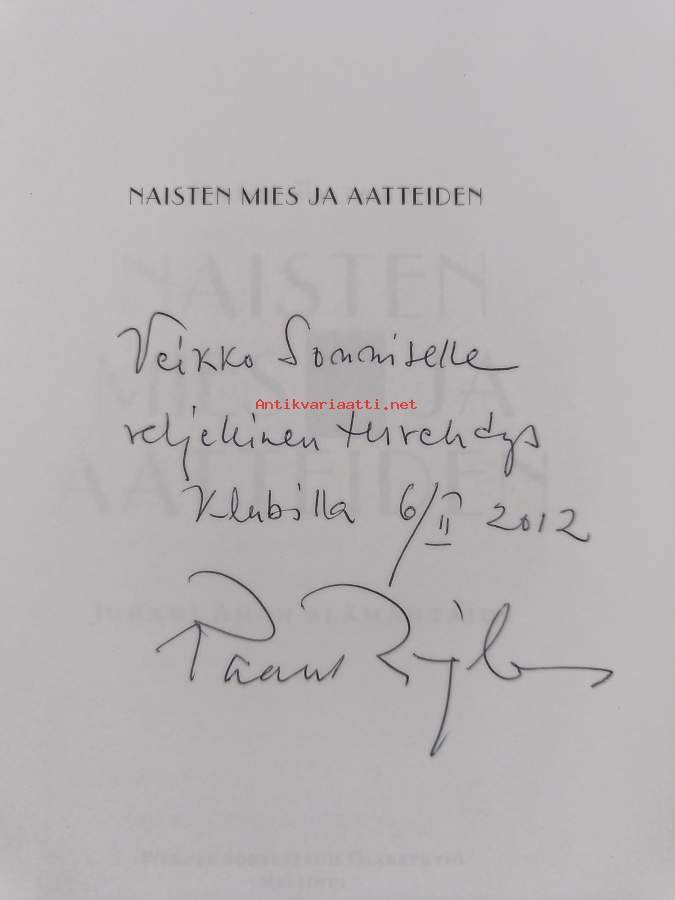 NAISTEN MIES JA AATTEIDEN
Veikko Sonniselle
Antikvariaatti.net
veljellinen tervehdys
Klubilla 6/II 2012
Panu Rajala